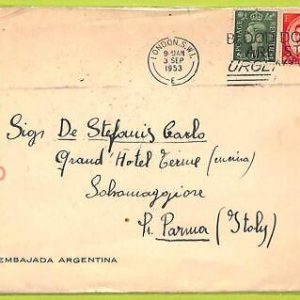 LONDON. S.W.1.
9 - AM
3 SEP
1953
E
BLOOD DO
ARE ST
URGEN
Sigr De Stefanis Carlo
Grand' Hotel Terme (cucina)
Salsomaggiore
Pr. Parma (Italy)
EMBAJADA ARGENTINA